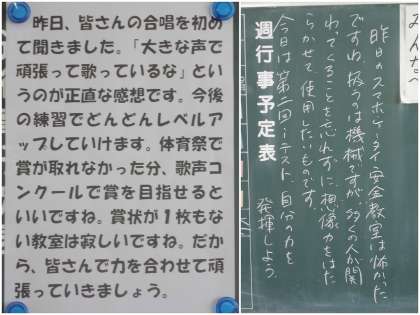 昨日、皆さんの合唱を初め
て聞きました。「大きな声で
頑張って歌っているな」とい
うのが正直な感想です。今後
の練習でどんどんレベルア
ップしていけます。体育祭で
賞が取れなかった分、歌声コ
ンクールで賞を目指せると
いいですね。賞状が1枚もな
い教室は寂しいですね。だか
ら、皆さんで力を合わせて頑
張っていきましょう。
みんなへ
昨日のスマホ・ケータイ安全教室は怖かった
ですね。扱うのは機械ですが、多くの人が関
わってくることを忘れずに、想像力をはた
らかせて使用したいものです。
今日は第二回テスト、自分の力を
発揮しよう
週行事予定表